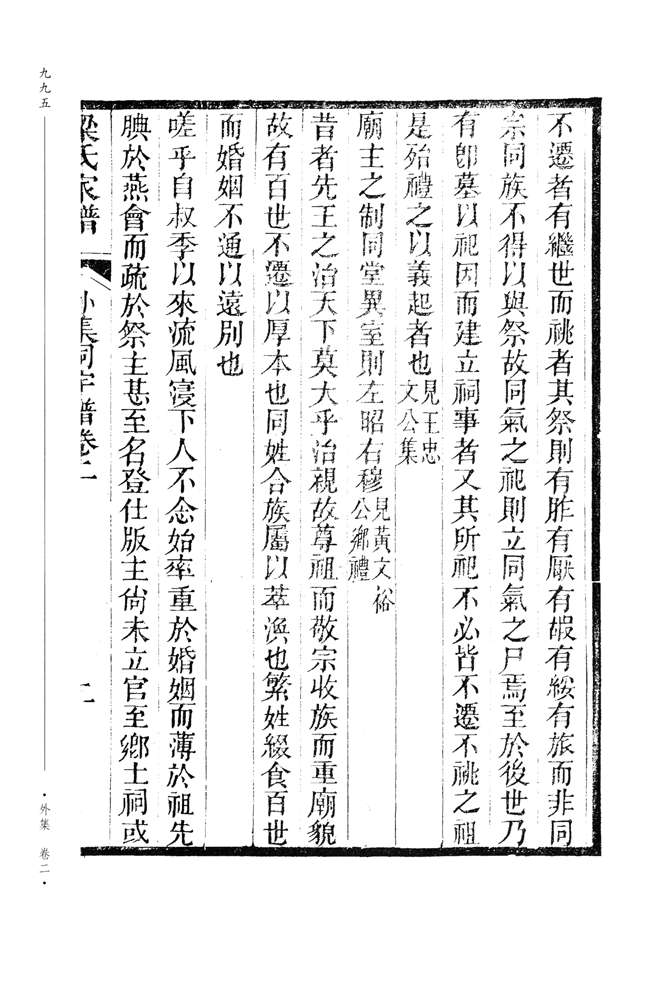 不遷者有繼世而祧者其祭則有胙有厭有嘏有綏有旅而非同
宗同族不得以與祭故同氣之祀則立同氣之尸焉至於後世乃
有卽墓以祀因而建立祠事者又其所祀不必皆不遷不祧之祖
是殆禮之以義起者也見王忠文公集
廟主之制同堂異室則左昭右穆見黃文裕公鄉禮
昔者先王之治天下莫大乎治親故尊祖而敬宗收族而重廟貌
故有百世不遷以厚本也同姓合族屬以萃渙也繁姓綴食百世
而婚姻不通以遠別也
嗟乎自叔季以來流風寖下人不念始率重於婚姻而薄於祖先
腆於燕會而疏於祭主甚至名登仕版主尙未立官至鄉士祠或
梁氏家譜 外集祠宇譜卷二 二
九九五
·外集 卷二·